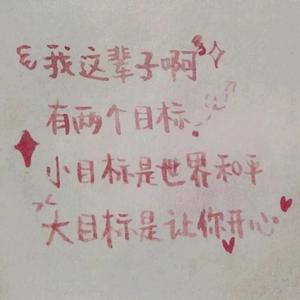 我这辈子啊
有两个目标.
小目标是世界和平
大目标是让你开心.